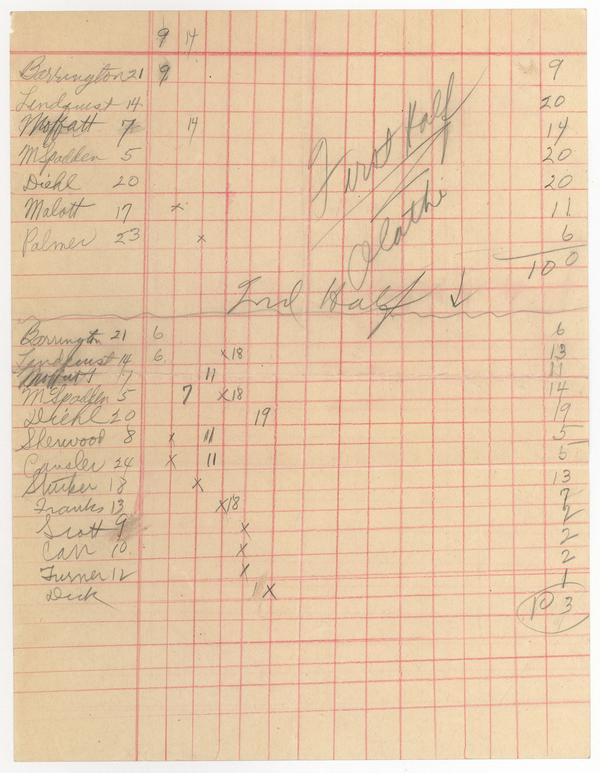 9 14
Barrington 21 9 9
Lindquist 14 20
Moffatt 7 14 14
McSpadden 5 20
Diehl 20 20
Malott 17 x 11
Palmer 23 x 6
100
First Half
Olathe
2nd Half ↓
Barrington 21 6 6
Lindquist 14 6 x18 13
Moffatt 17 11 11
McSpadden 5 7 x18 14
Diehl 20 19 19
Sherwood 8 x 11 5
Cansler 24 x 11 5
18 x 13
Franks 13 x18 7
Scott 9 x 2
Carr 10 x 2
Turner 12 x 2
Dick 1 x 1
103